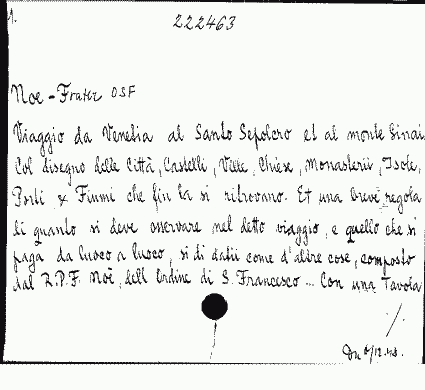 1.
222463
Noe - Frater OSF
Viaggio da Venetia al Santo Sepolcro et al monte Sinai
Col disegno delle Città, Castelli, Ville, Chiese, Monasterii, Isole,
Porti & Fiumi che fin la si ritrovano. Et una breve regola
di quanto si deve osservare nel detto viaggio, e quello che si
paga da luoco a luoco, si di datii come d'altre cose, composto
dal R.P.F. Noè, dell Ordine di S. Francesco ... Con una Tavola
./.